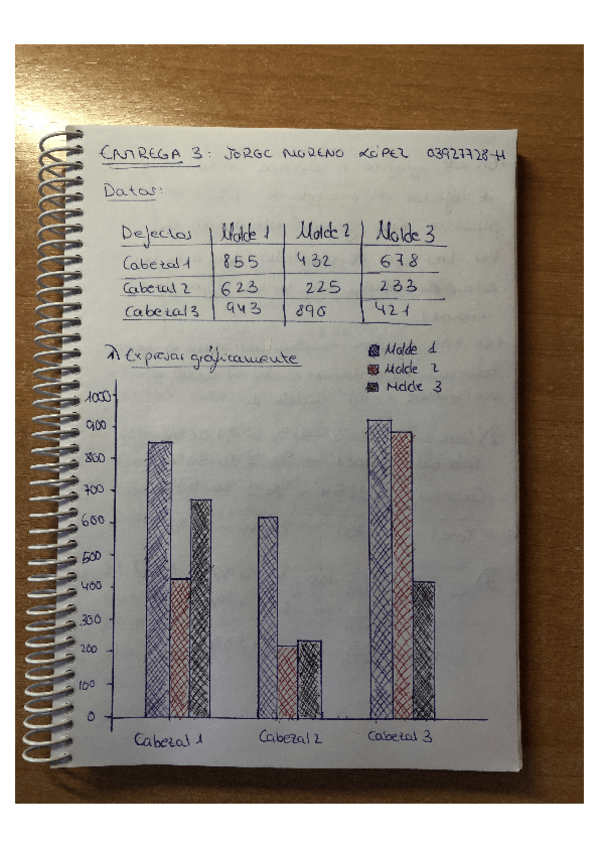 ENTREGA 3: JORGE MORENO LÓPEZ 03927728-H
Datos:
Defectos Molde 1 Molde 2 Molde 3
Cabezal 1 855 432 678
Cabezal 2 623 225 233
Cabezal 3 943 890 421
1) Expresar gráficamente
Molde 1
Molde 2
Molde 3
1000
900
800
700
600
500
400
300
200
100
0
Cabezal 1 Cabezal 2 Cabezal 3